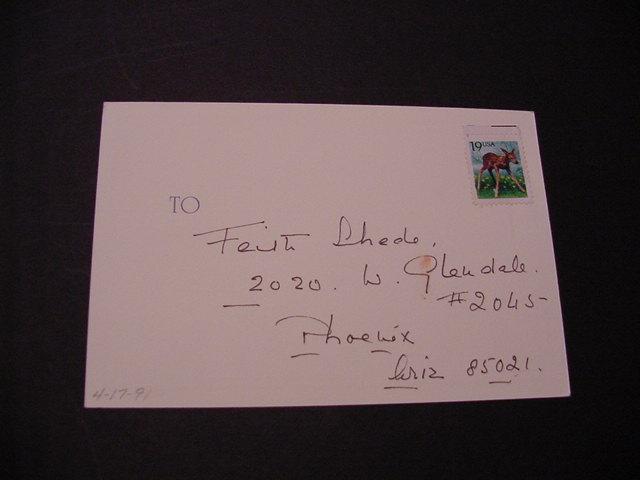 19 USA
TO
Feith Shede.
2020. W. Glendale.
#2045
Phoenix
Ariz 85021.
4-17-91